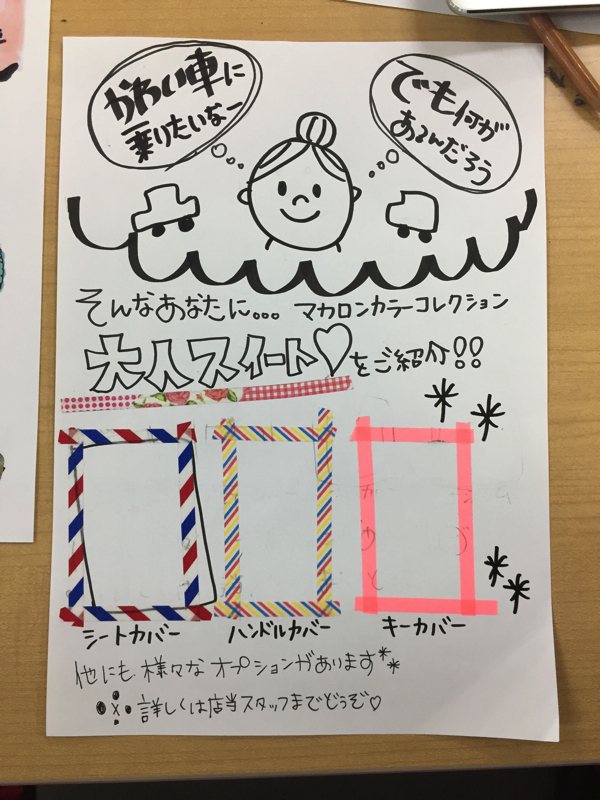 かわいい車に
乗りたいなー
でも何が
あるんだろう
そんなあなたに... マカロンカラーコレクション
大人スイート♡をご紹介!!
シートカバー
ハンドルカバー
キーカバー
他にも様々なオプションがあります**
詳しくは店当スタッフまでどうぞ♡